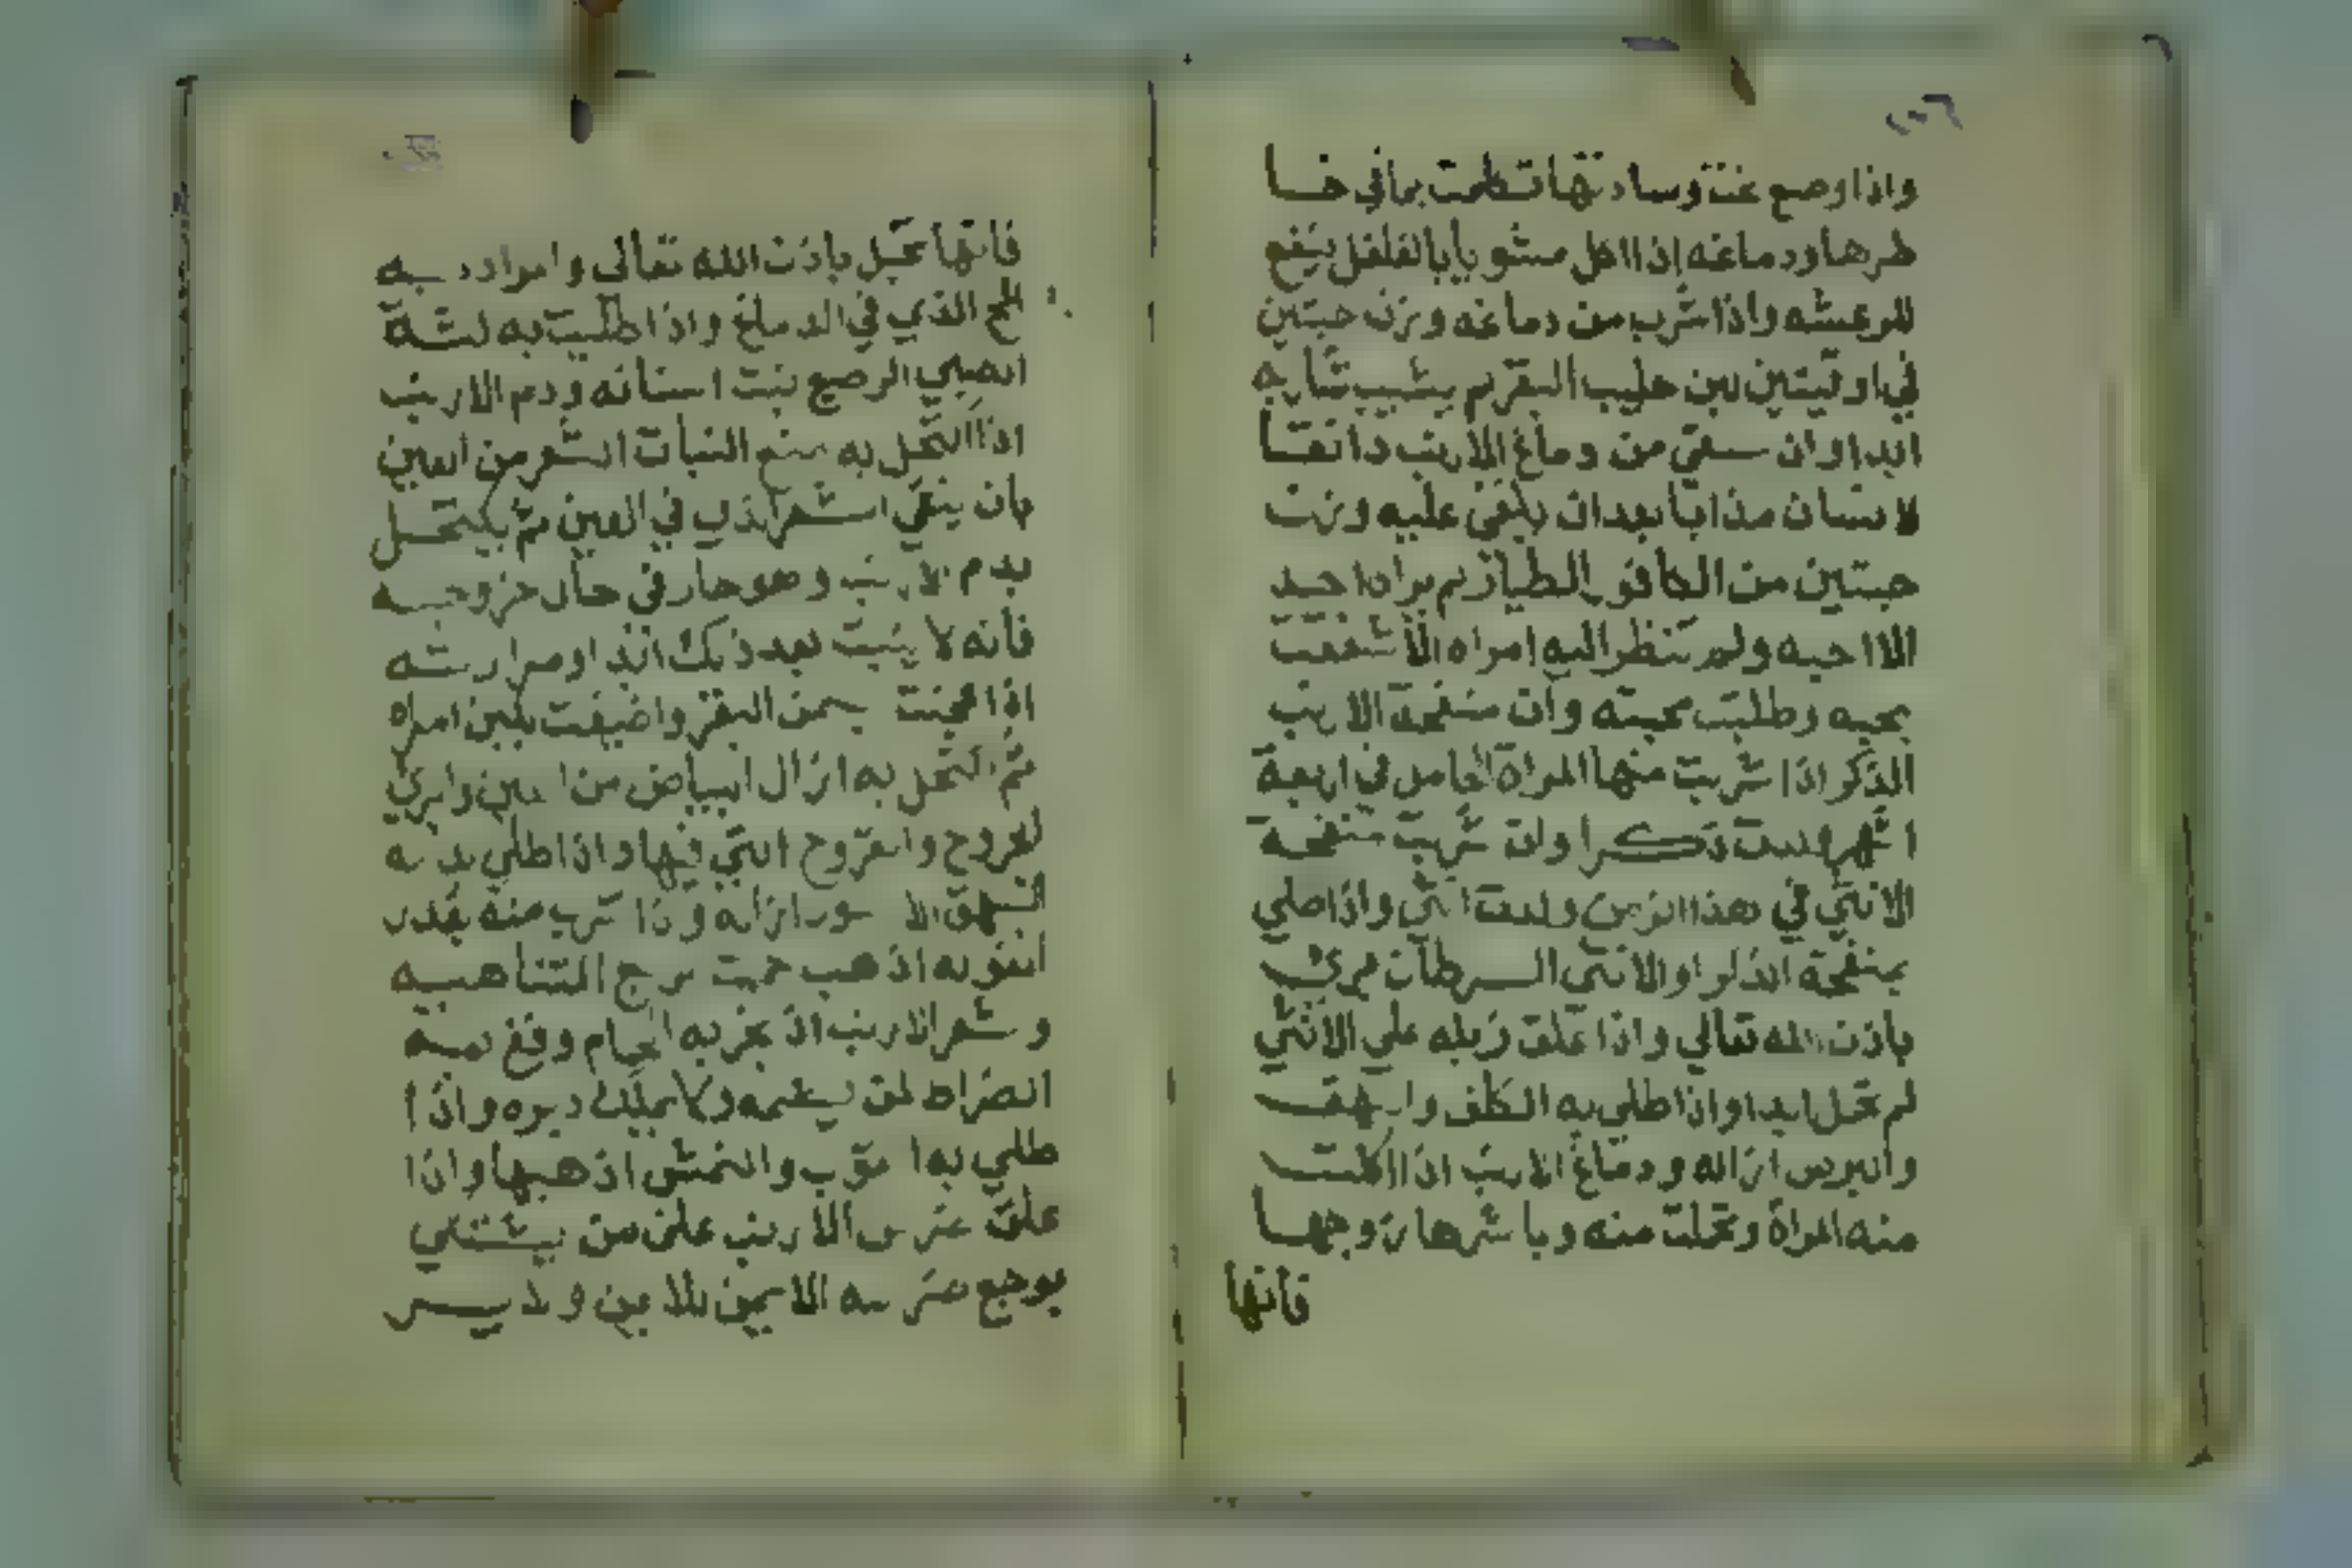 واذا وضع تحت وسادتها تكلمت بما في خا
طرها ودماغه إذا اكل مشويا بالفلفل ينفع
للرعشه واذا شرب من دماغه وزن حبتين
في اوقيتين لبن حليب البقر لم يشيب شاربه
ابدا وان سقي من دماغ الارنب دانقا
لانسان مذابا بعد ان يلقى عليه وزن
حبتين من الكافور الطيار لم يراه احد
الا احبه ولم تنظر اليه امراه الا شغفت
بحبه وطلبت محبته وان منفحة الارنب
الذكر اذا شربت منها المراة الحامل في اربعة
اشهر ولدت ذكرا وان شربت منفحة
الانثي في هذا الزمن ولدت انثي واذا طلي
بمنفحة الذكر او الانثي السرطان بري
باذن الله تعالي واذا علق زبله علي الانثي
لم تحبل ابدا واذا طلي به الكلف والبهق
والبرص ازاله ودماغ الارنب اذا اكلت
منه المراة وتحملت منه وباشرها زوجها
فانها
فانها تحبل باذن الله تعالى وامراد به
المخ الذي في الدماغ واذا طليت به لثة
الصبي الرضيع نبت اسنانه ودم الارنب
اذا اكتحل به منع النبات الشعر من العين
بان ينقي الشعر الذي في العين ثم يكتحل
بدم الارنب وهو حار في حال خروجه
فانه لا ينبت بعد ذلك ابدا ومرارته
اذا عجنت بسمن البقر واضيفت بلبن امراه
ثم اكتحل به ازال البياض من العين وابري
الجروح والقروح التي فيها واذا طلي بدمه
البهق الاسود ازاله واذا شرب منه بقدر
الفوله اذهب
وشعر الارنب اذا بخر به الحمام وقع بمن
الضراط لمن يشمه ولا يملك دبره واذا
طلي به القوب والنمش اذهبها واذا
علق ضرس الارنب على من يشتكي
بوجع ضرسه الايمن بلا من والايسر